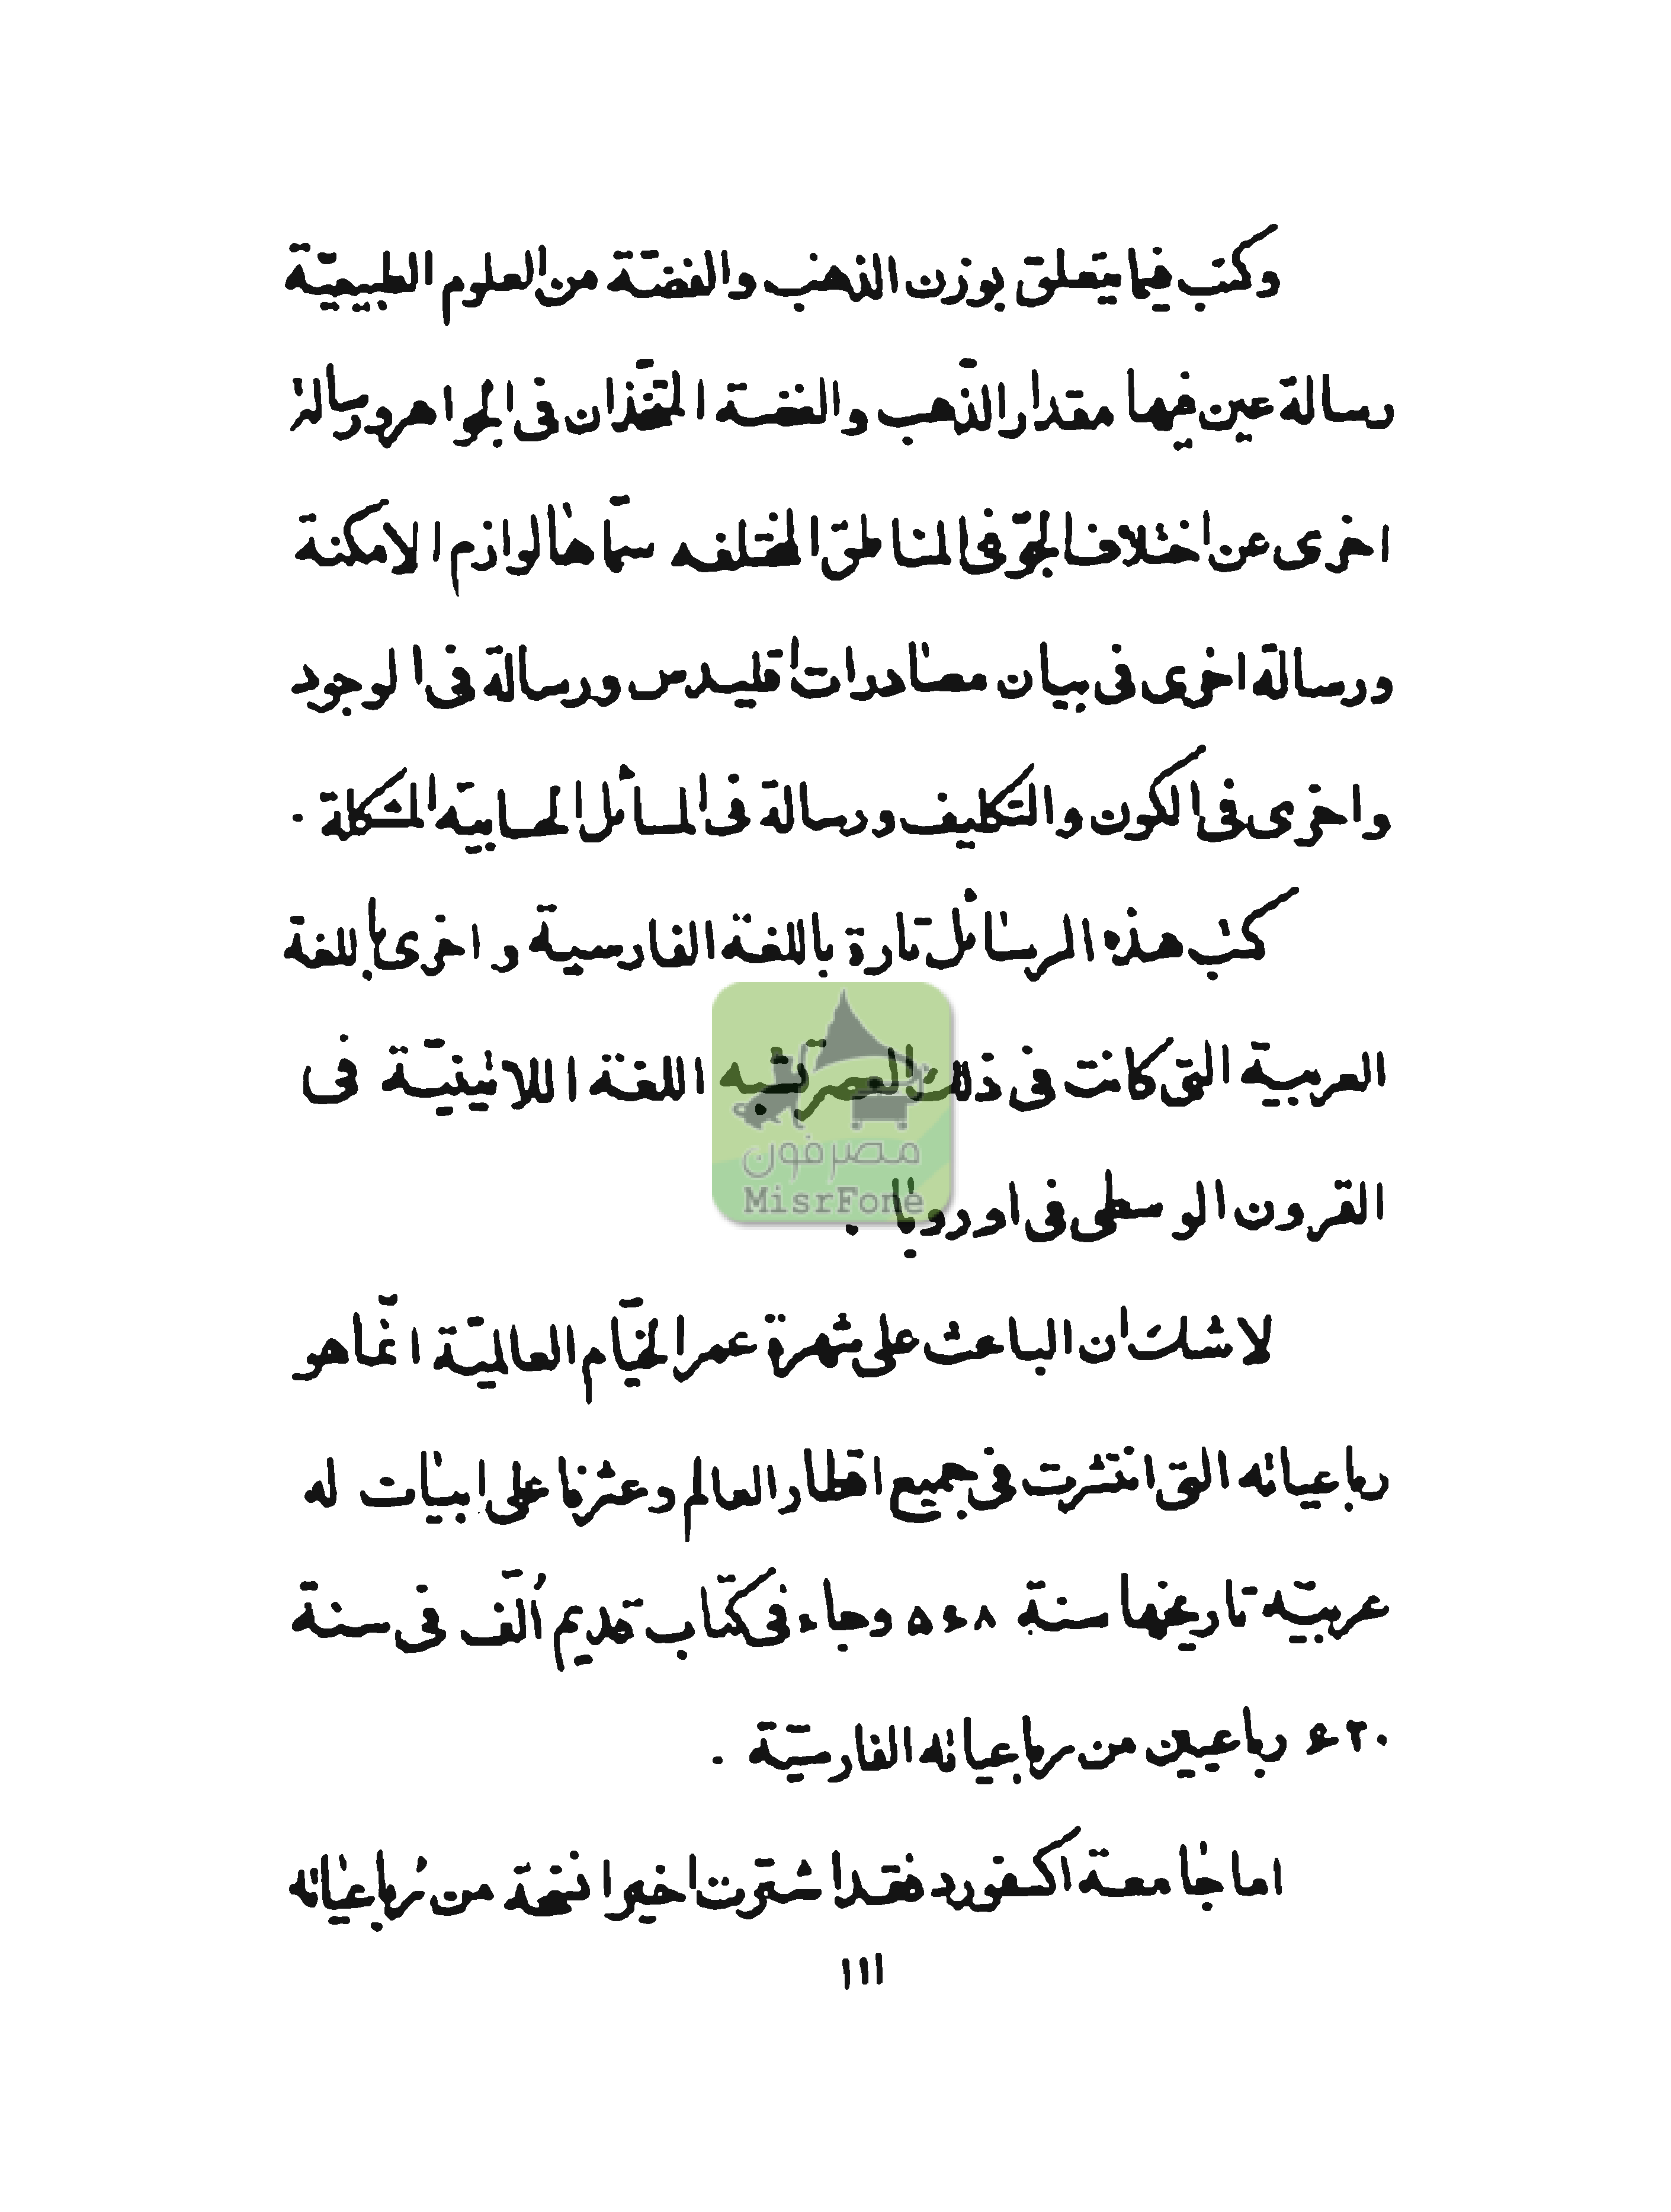 وكتب فيما يتعلق بوزن الذهب والفضّة من العلوم الطبيعيّة
رسالة عين فيها مقدار الذّهب والفضة المتّخذان فى الجواهر ورسالة
اخرى عن اختلاف الجوّ فى المناطق المختلفه سمّاها لوازم الامكنة
ورسالة اخرى فى بيان مصادرات اقليدس ورسالة فى الوجود
واخرى فى الكون والتكليف ورسالة فى المسائل الحسابيّه المشكلة .
كتب هذه الرسائل تارة باللغة الفارسية و اخرى باللغة
العربية التى كانت فى ذلك العصر تشبه اللغة اللاتينيّة فى
القرون الوسطى فى اوروپا .
لا شك ان الباعث على شهرة عمر الخيّام العالميّة انّما هو
رباعياته التى انتشرت فى جميع اقطار العالم وعثرنا على ابيات له
عربيّه تاريخها سنة ۵۶۸ وجاء فى كتاب قديم اُلّف فى سنة
۶۲۰ رباعيين من رباعياته الفارسيّة .
اما جامعة اكسفورد فقد اشترت اخيرا نسخة من رُباعياته
۱۱۱
مصرفون
MisrFone